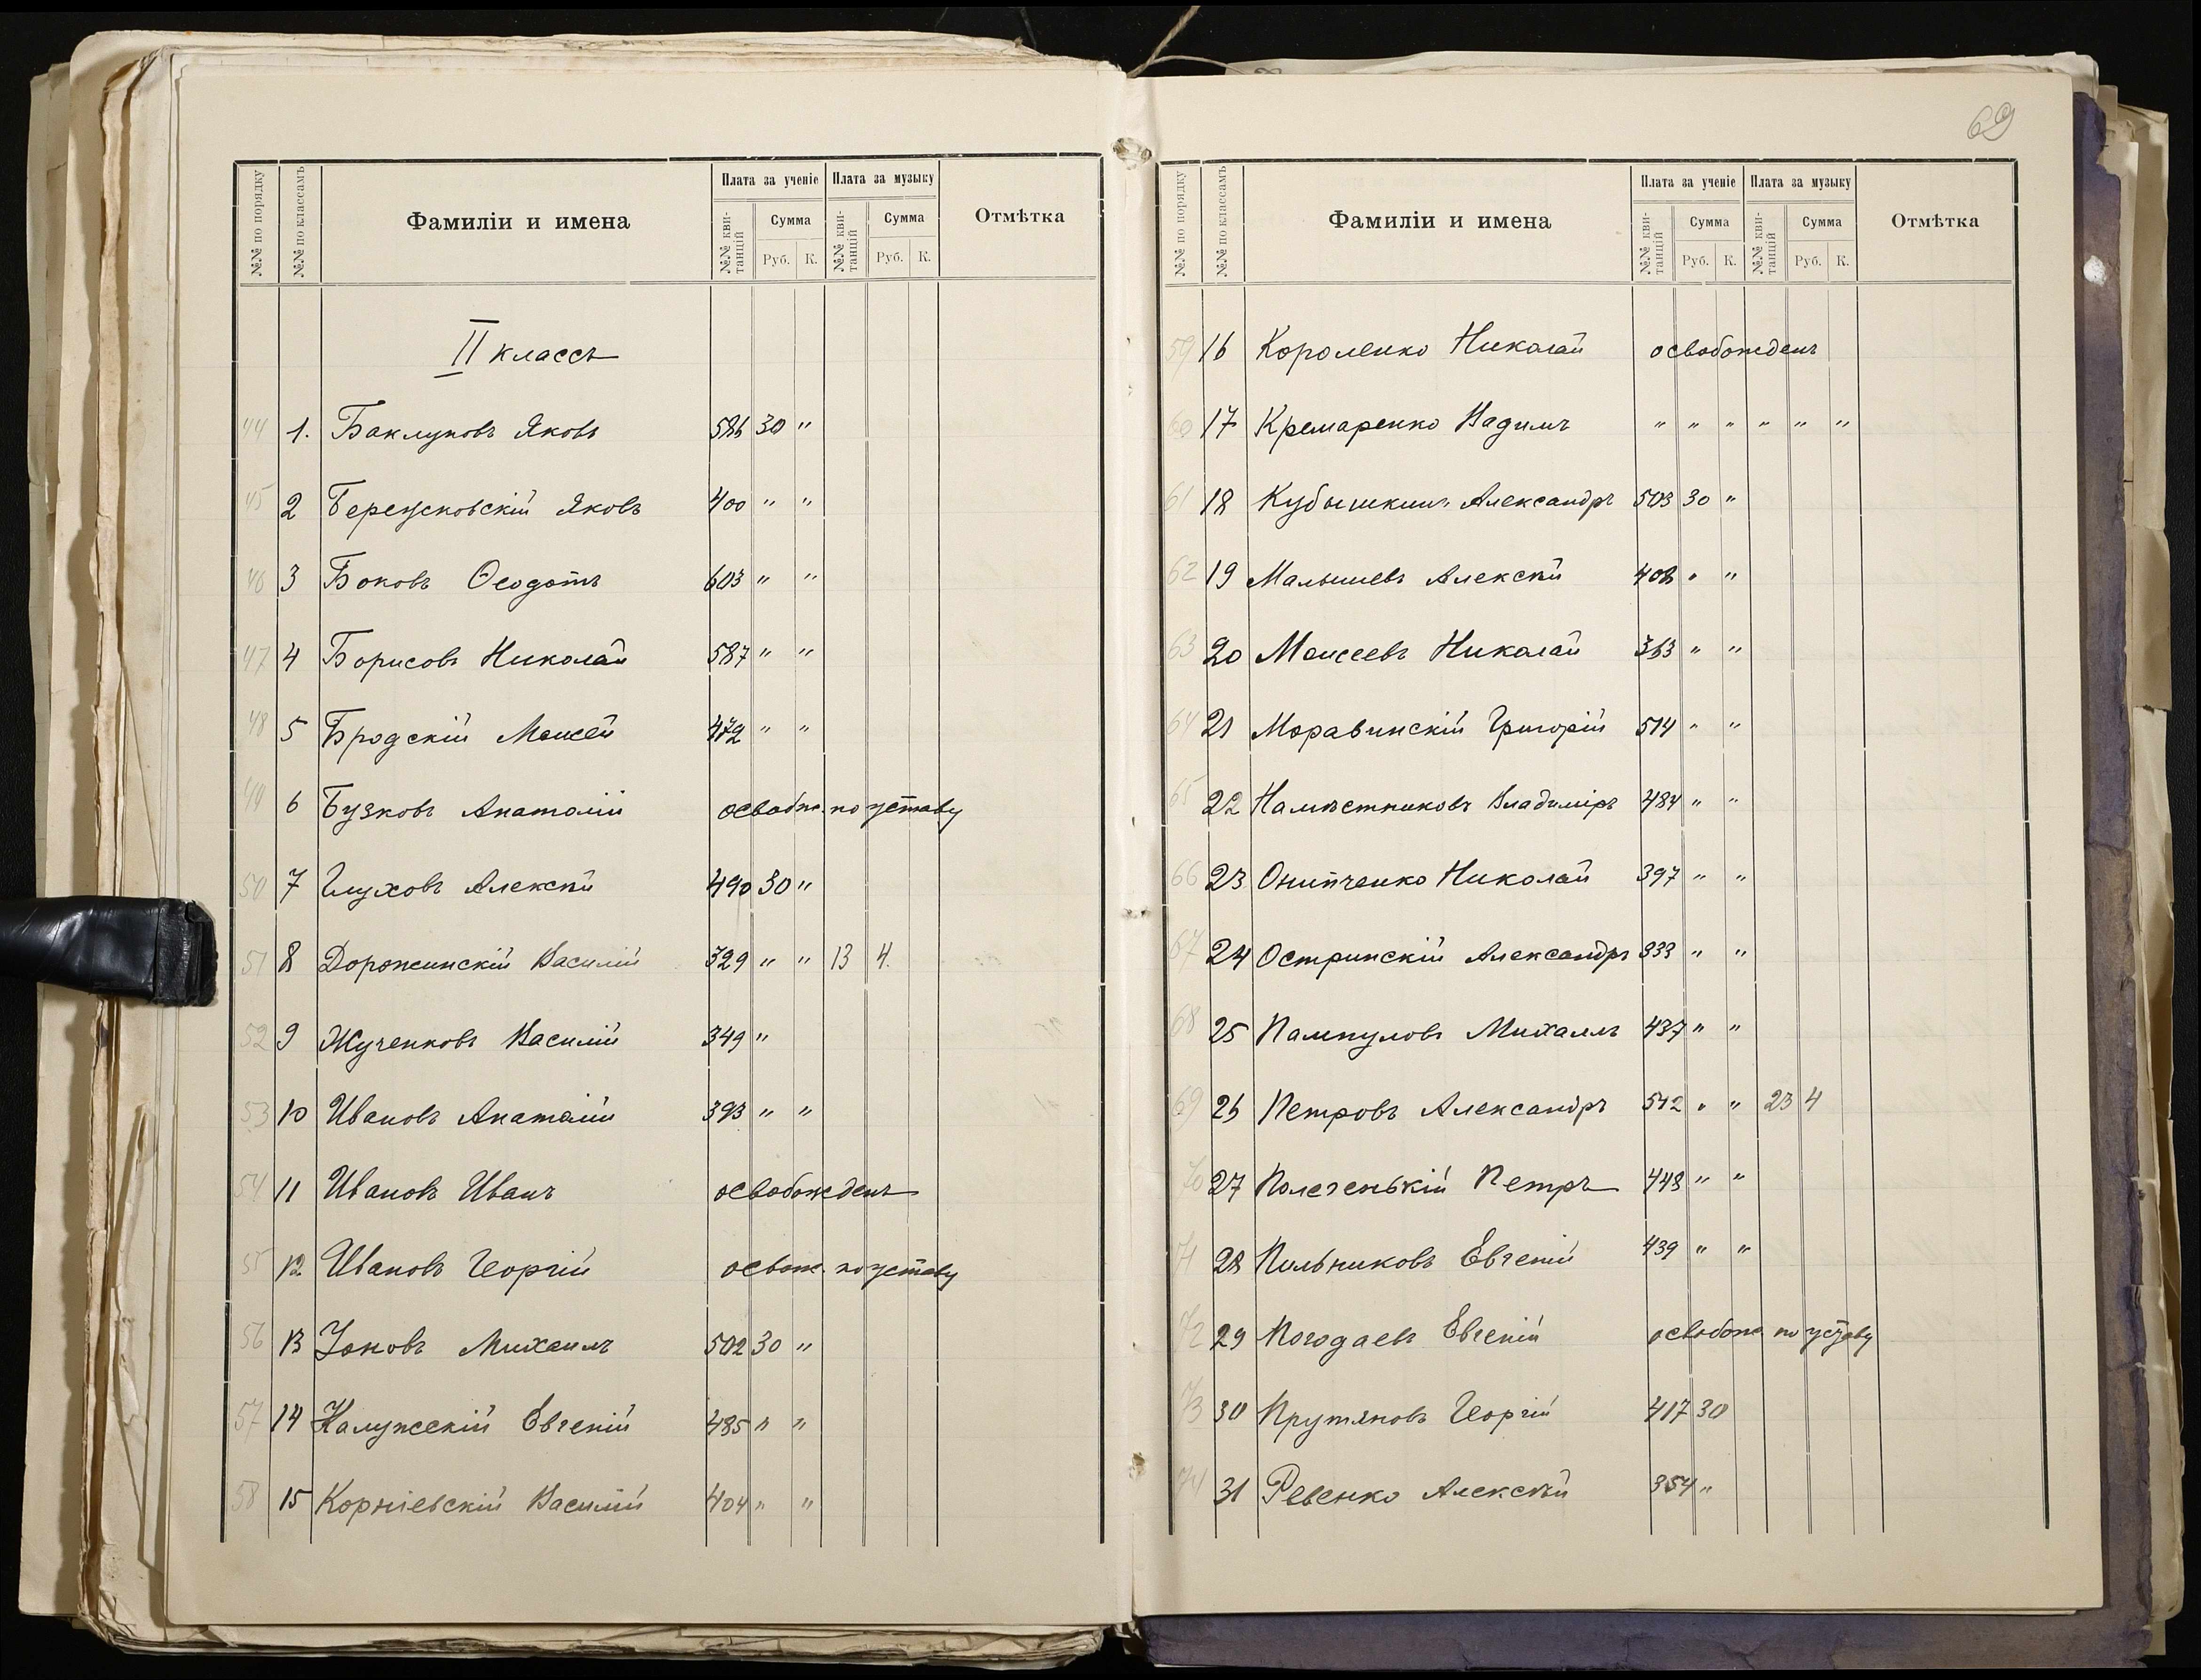 69
№№ по порядку №№ по классамъ Фамиліи и имена Плата за ученіе Плата за музыку Отмѣтка
№№ квитанцій Сумма №№ квитанцій Сумма
Руб. К. Руб. К.
II классъ
44 1. Баклуновъ Яковъ 586 30 "
45 2 Бережковскій Яковъ 400 " "
46 3 Боковъ Ѳеодотъ 603 " "
47 4 Борисовъ Николай 587 " "
48 5 Бродскій Моисей 472 " "
49 6 Бузковъ Анатолій освобж. по уставу
50 7 Глуховъ Алексѣй 490 30 "
51 8 Дорожинскій Василій 329 " " 13 4.
52 9 Жученковъ Василій 349 "
53 10 Ивановъ Анатолій 393 " "
54 11 Ивановъ Иванъ освобожденъ
55 12 Ивановъ Георгій освож. по уставу
56 13 Іоновъ Михаилъ 502 30 "
57 14 Калужскій Евгеній 485 " "
58 15 Корніевскій Василій 404 " "
№№ по порядку №№ по классамъ Фамиліи и имена Плата за ученіе Плата за музыку Отмѣтка
№№ квитанцій Сумма №№ квитанцій Сумма
Руб. К. Руб. К.
59 16 Короленко Николай освобожденъ
60 17 Кремаренко Вадимъ " " " " " "
61 18 Кубышкинъ Александръ 503 30 "
62 19 Малышевъ Алексѣй 408 " "
63 20 Моисеевъ Николай 363 " "
64 21 Моравинскій Григорій 514 " "
65 22 Намѣстниковъ Владиміръ 484 " "
66 23 Онипченко Николай 397 " "
67 24 Остринскій Александръ 333 " "
68 25 Пампуловъ Михаилъ 437 " "
69 26 Петровъ Александръ 512 " " 23 4
70 27 Полезенькій Петръ 448 " "
71 28 Пильниковъ Евгеній 439 " "
72 29 Погодаевъ Евгеній освобож. по уставу
73 30 Прутяновъ Георгій 417 30
74 31 Ревенко Алексѣй 354 "